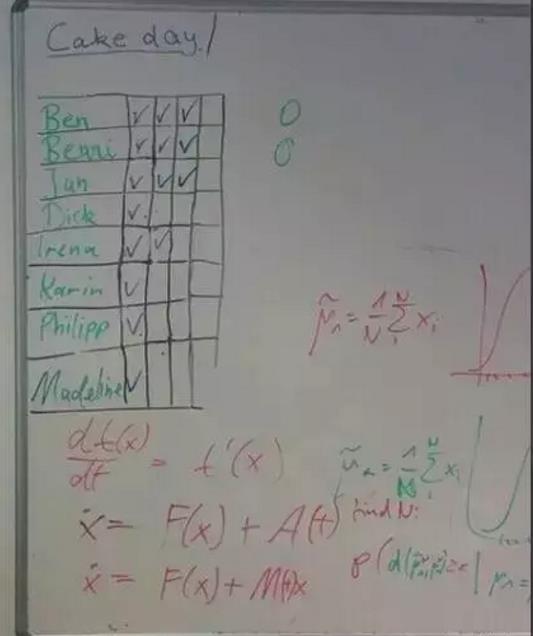 Cake day!
Ben ✓ ✓ ✓
Benni ✓ ✓ ✓
Jan ✓ ✓ ✓
Dick ✓
Irena ✓ ✓
Karin ✓
Philipp ✓
Madeline ✓
μ̃₁ = 1/N Σᵢᴺ xᵢ
df(x)/dt = f'(x)
ũ₂ = 1/N Σᵢᴺ xᵢ
ẋ = F(x) + A(t)
find N:
ẋ = F(x) + M(t)x